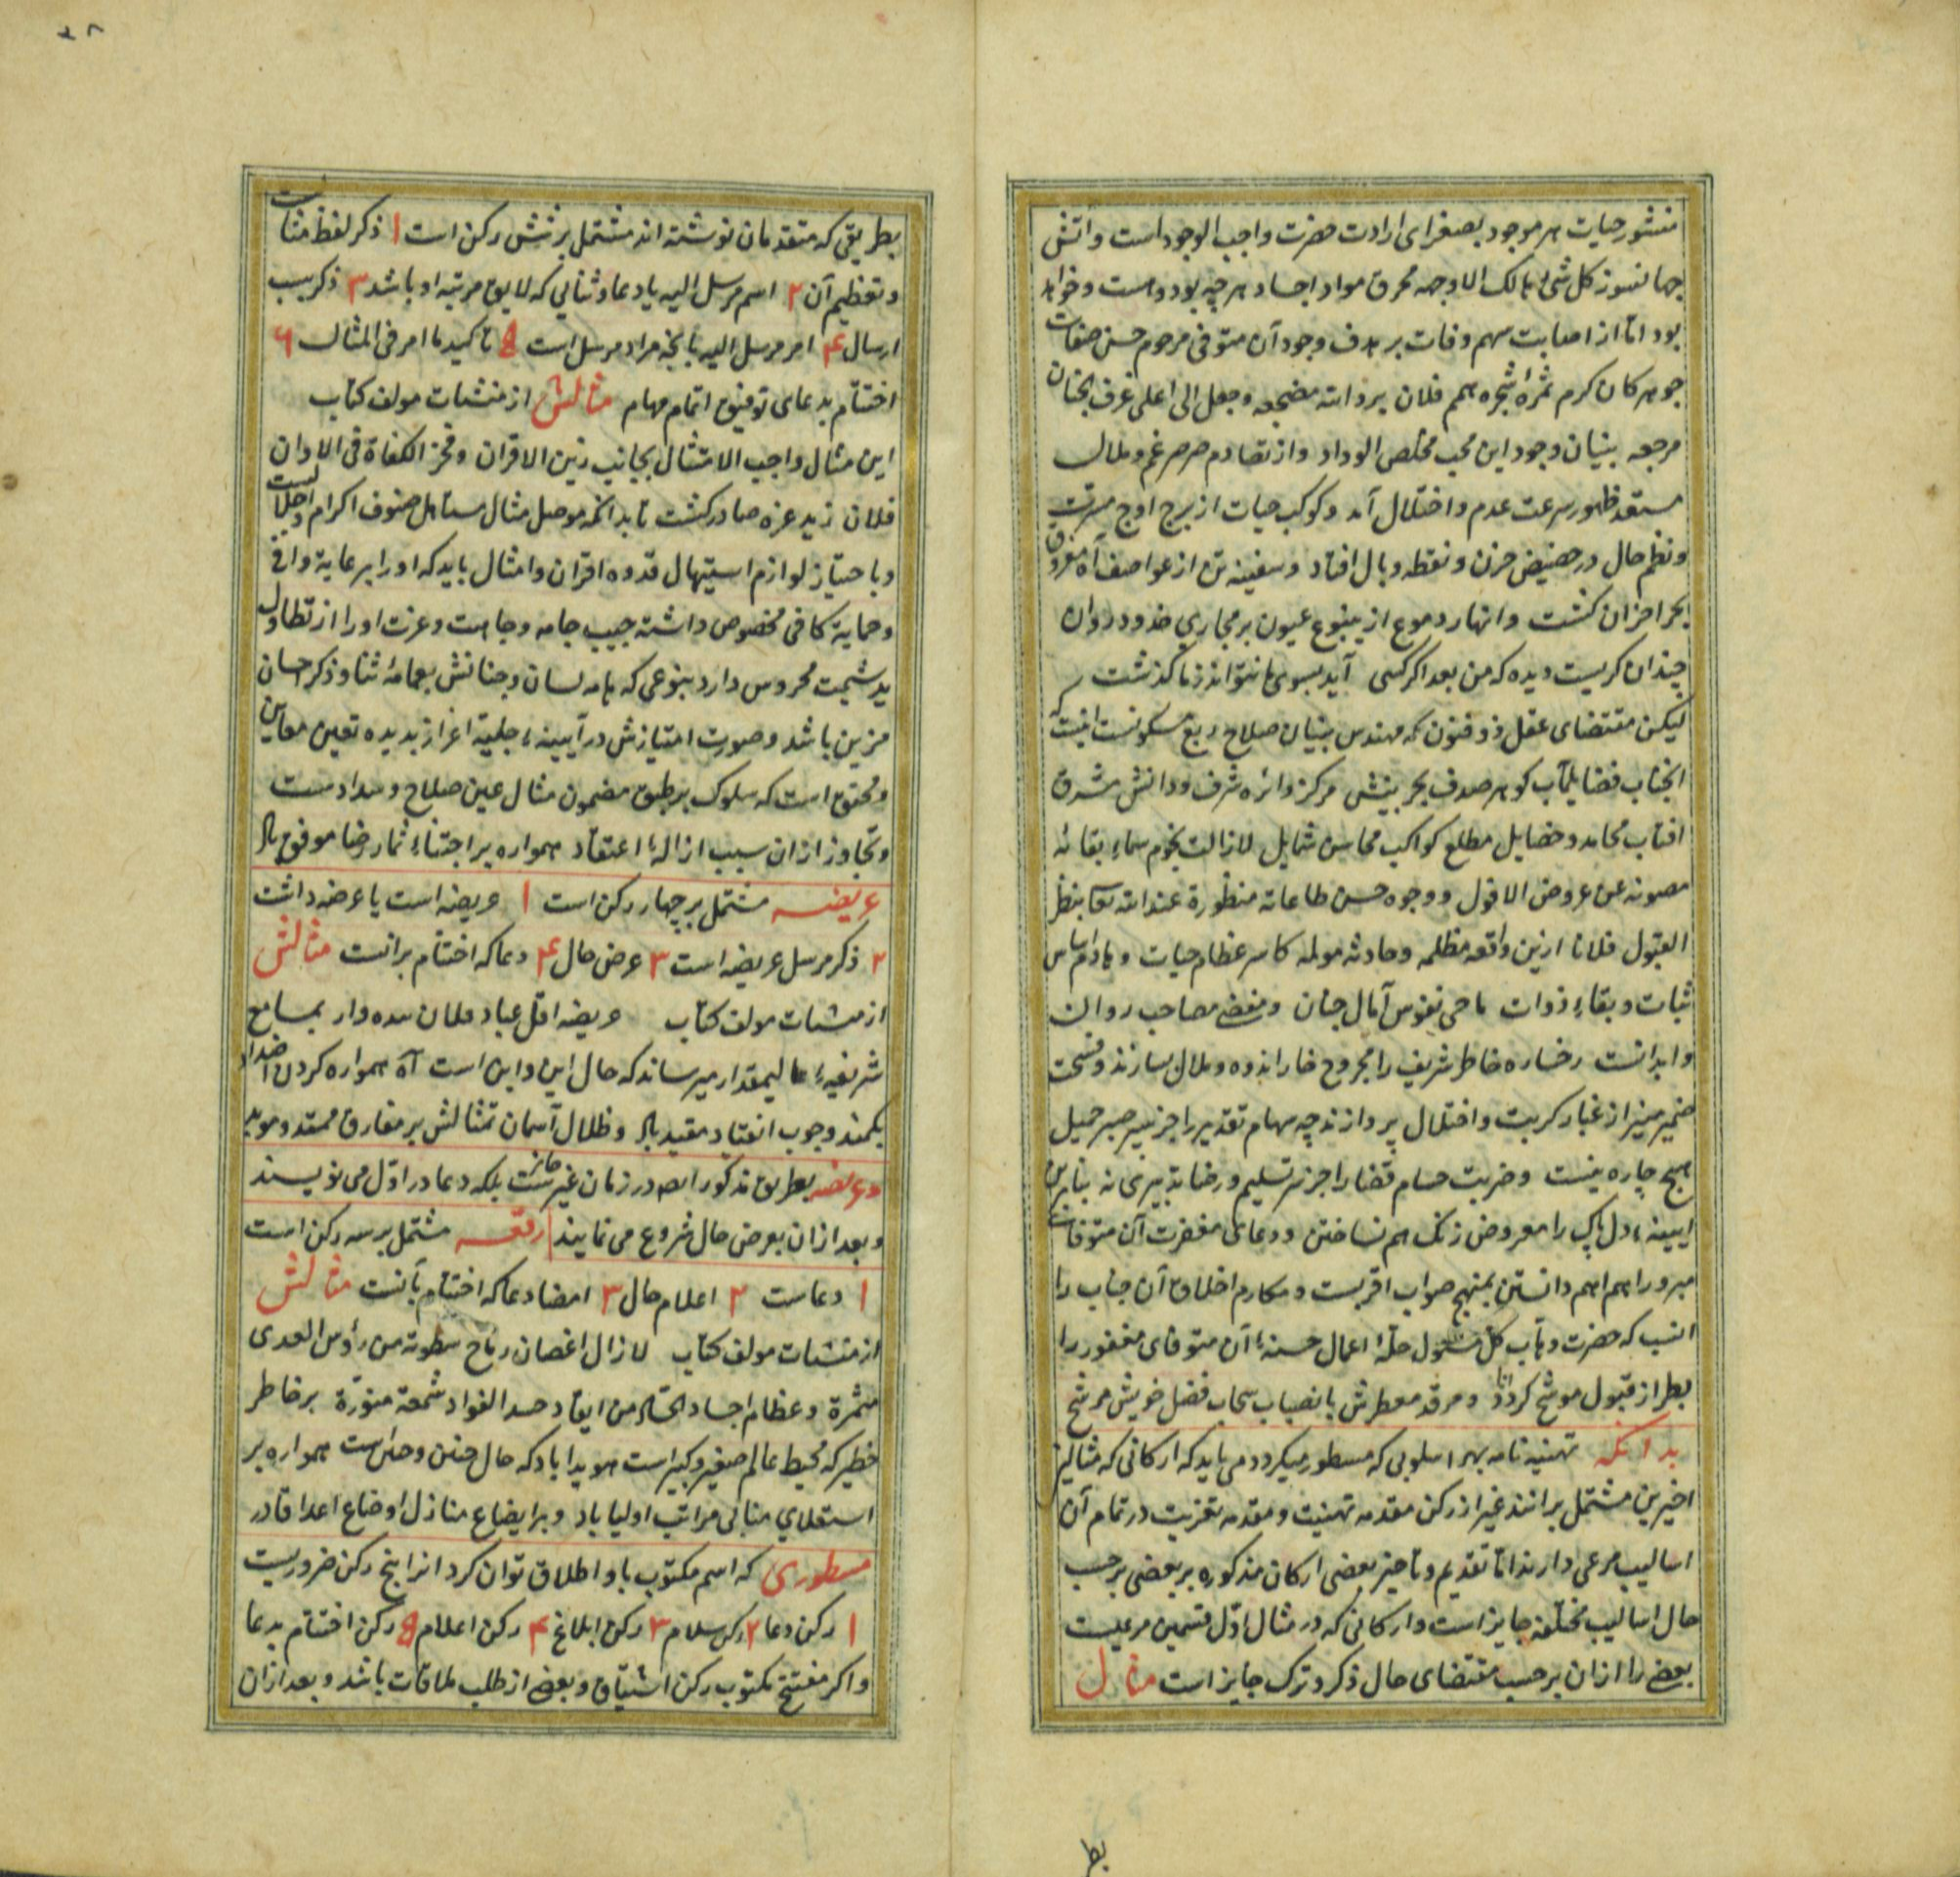 منشور حیات هر موجود بصغرای ارادت حضرت واجب الوجود است و اتش
جهانسوز کل شئ هالک الا وجهه محرق مواد اجساد هر چه بود و هست و خواهد
بود اما از اصابت سهم وفات بر هدف وجود آن متوفی مرحوم حسن صفات
جوهر کان کرم ثمرهٔ شجره همم فلان برد الله مضجعه وجعل الی اعلی غرف الجنان
مرجعه بنیان وجود این محب مخلص الوداد و از تصادم صرصر غم و ملال
مستعد ظهور سرعت عدم و اختلال آمد و کوکب حیات از برج اوج مسرت
و نظم حال در حضیض حزن و نقطه وبال افتاد و سفینه تن از عواصف آه مغروق
بحر احزان کشت و انهار دموع از ینبوع عیون بر مجاری خدود روان
چندان کریست دیده که من بعد اکر کسی آید بسوی ما نتواند ز ما کذشت
لیکن مقتضای عقل ذو فنون که مهندس بنیان صلاح ربع مسکونست انیست که
انجناب فضایلمآب کوهر صدف بحر بینش مرکز دائره شرف و دانش مشرق
افتاب محامد و خصایل مطلع کواکب محاسن شمایل لازالت نجوم سماء بقائه
مصونه عن عروض الافول و وجوه حسن طاعاته منظورة عند الله تعالی بنظر
القبول فلانا ازین واقعه مظلمه و حادثه مولمه کاسر عظام حیات و هادم اساس
ثبات و بقاء ذوات ماحی نقوس آمال جنان و منغص مصاحب روان
و ابدانست رخساره خاطر شریف را مجروح خار اندوه و ملال نسازند و فسحت
ضمیر منیر از غبار کربت و اختلال پردازند چه سهام تقدیر را جز سپر صبر جمیل
هیچ چاره نیست و ضربت حسام قضا را جز سر تسلیم و رضا تدبیری نه بنابرین
ایینهٔ دل پاک را معروض زنک هم نساختن و دعای مغفرت آن متوفات
مبرور را هم اهم دانستن بمنهج صواب اقربست و مکارم اخلاق آن جناب را
انسب که حضرت وهاب کل مسئول حلهٔ اعمال حسنهٔ آن متوفای مغفور را
بطراز قبول موشح کرداناد و مرقد معطرش بانصباب سحاب فضل خویش مرشح
بدانکه تهنیه نامه بهر اسلوبی که مسطور میکردد می باید که ارکانی که مثالین
اخیرین مشتمل برانند غیر از رکن مقدمه تهنیت و مقدمه تعزیت در تمام آن
اسالیب مرعی دارند اما تقدیم و تاخیر بعضی ارکان مذکوره بر بعضی بر حسب
حال اسالیب مختلفه جایز است و ارکانی که در مثال اول قسمین مرعیست
بعضی را ازان بر حسب مقتضای حال ذکر و ترک جایز است مثال
بط
بطریقی که متقدمان نوشته اند مشتمل بر شش رکن است ۱ ذکر لفظ مثالست
و تعظیم آن ۲ اسم مرسل الیه با دعا و ثنایی که لایق مرتبه او باشد ۳ ذکر سبب
ارسال ۴ امر مرسل الیه بانچه مراد مرسل است ۵ تاکید ما امر فی المثال ۶
اختتام بدعای توفیق اتمام مهام مثالش از منشات مولف کتاب
این مثال واجب الامتثال بجانب زین الاقران و فخر الکفاة فی الاوان
فلان زید عزه صادر کشت تا بدانکه موصل مثال مستاهل صنوف اکرام و اجلالست
و باحتیاز لوازم استیهال قدوه اقران و امثال باید که او را برعایة وافی
و حمایة کافی مخصوص داشته جیب جامه وجاهت و عزت او را از تطاول
ید شیمت محروس دارد بنوعی که هامه لسان و جنانش بعمامهٔ ثنا و ذکر احسان
مزین باشد و صورت امتیازش در آیینهٔ جلیهٔ اغراز بدیده تعین معاین
و محقق است که سلوک بر طبق مضمون مثال عین صلاح و سدادست
و تجاوز ازان سبب ازالهٔ اعتقاد همواره بر اجتناء ثمار رضا موفق باد
عریضه مشتمل بر چهار رکن است ۱ عریضه است یا عرضه داشت
۲ ذکر مرسل عریضه است ۳ عرض حال ۴ دعا که اختتام برانست مثالش
از منشات مولف کتاب عریضه اقل عباد فلان بنده وار بمسامع
شریفهٔ عالیمقدار میرساند که حال این و این است آه همواره کردن اضداد
بکمند وجوب انقیاد مقید باد و ظلال آسمان تمثالش بر مفارق ممتد و موبد
و عریضه بطریق مذکور الصدر زمان غیر جائزست بلکه دعا در اول می نویسند
و بعد ازان بعرض حال شروع می نمایند رقعه مشتمل بر سه رکن است
۱ دعاست ۲ اعلام حال ۳ امضا دعا که اختتام بآنست مثالش
از منشات مولف کتاب لازال اغصان رماح سطوته من رؤس العدی
مثمرة و عظام اجساد الحساد من ایقاد حسد الفواد شمعة منورة بر خاطر
خطیر که محیط عالم صغیر و کبیر است هویدا باد که حال چنین و چنانست همواره بر
استعلای مبانی مراتب اولیا باد و بر ایضاع منازل اوضاع اعدا قادر
مسطوری که اسم مکتوب باو اطلاق توان کرد انرا پنج رکن ضروریست
۱ رکن دعا ۲ رکن سلام ۳ رکن ابلاغ ۴ رکن اعلام ۵ رکن اختتام بدعا
و اکر مفتتح مکتوب رکن اشتیاق و بعضی از طلب ملاقات باشد و بعد ازان